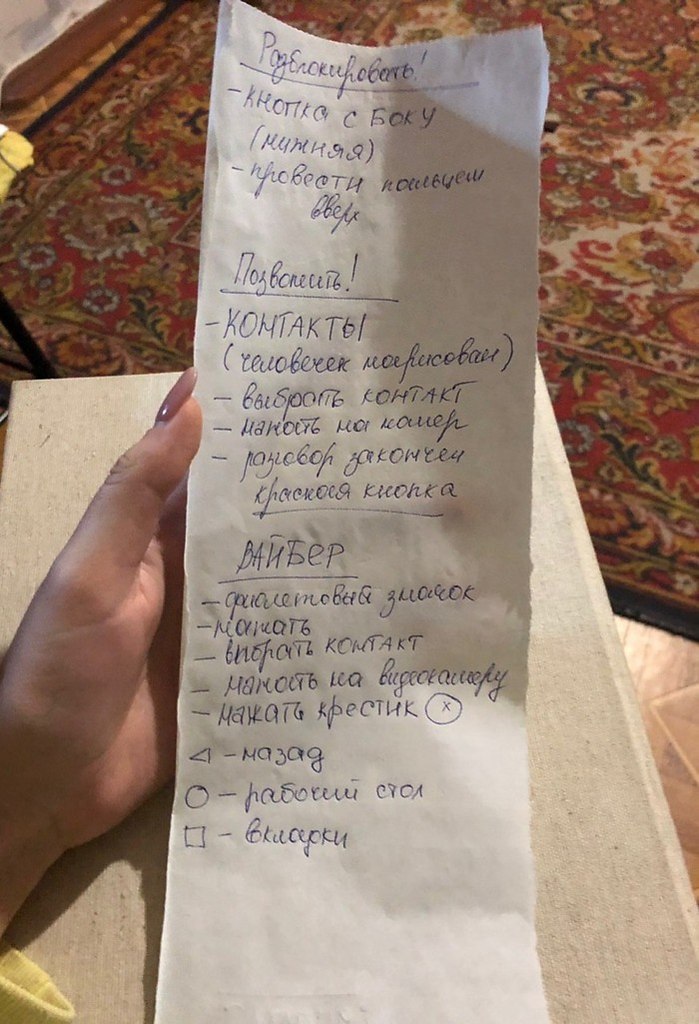 Разблокировать!
- КНОПКА С БОКУ
(нижняя)
- провести пальцем
вверх
Позвонить!
- КОНТАКТЫ
(человечек нарисован)
- выбрать КОНТАКТ
- нажать на номер
- разговор закончен
красная кнопка
ВАЙБЕР
- фиолетовый значок
- нажать
- выбрать КОНТАКТ
- нажать на видеокамеру
- нажать крестик ⓧ
◁ - назад
○ - рабочий стол
□ - вкладки